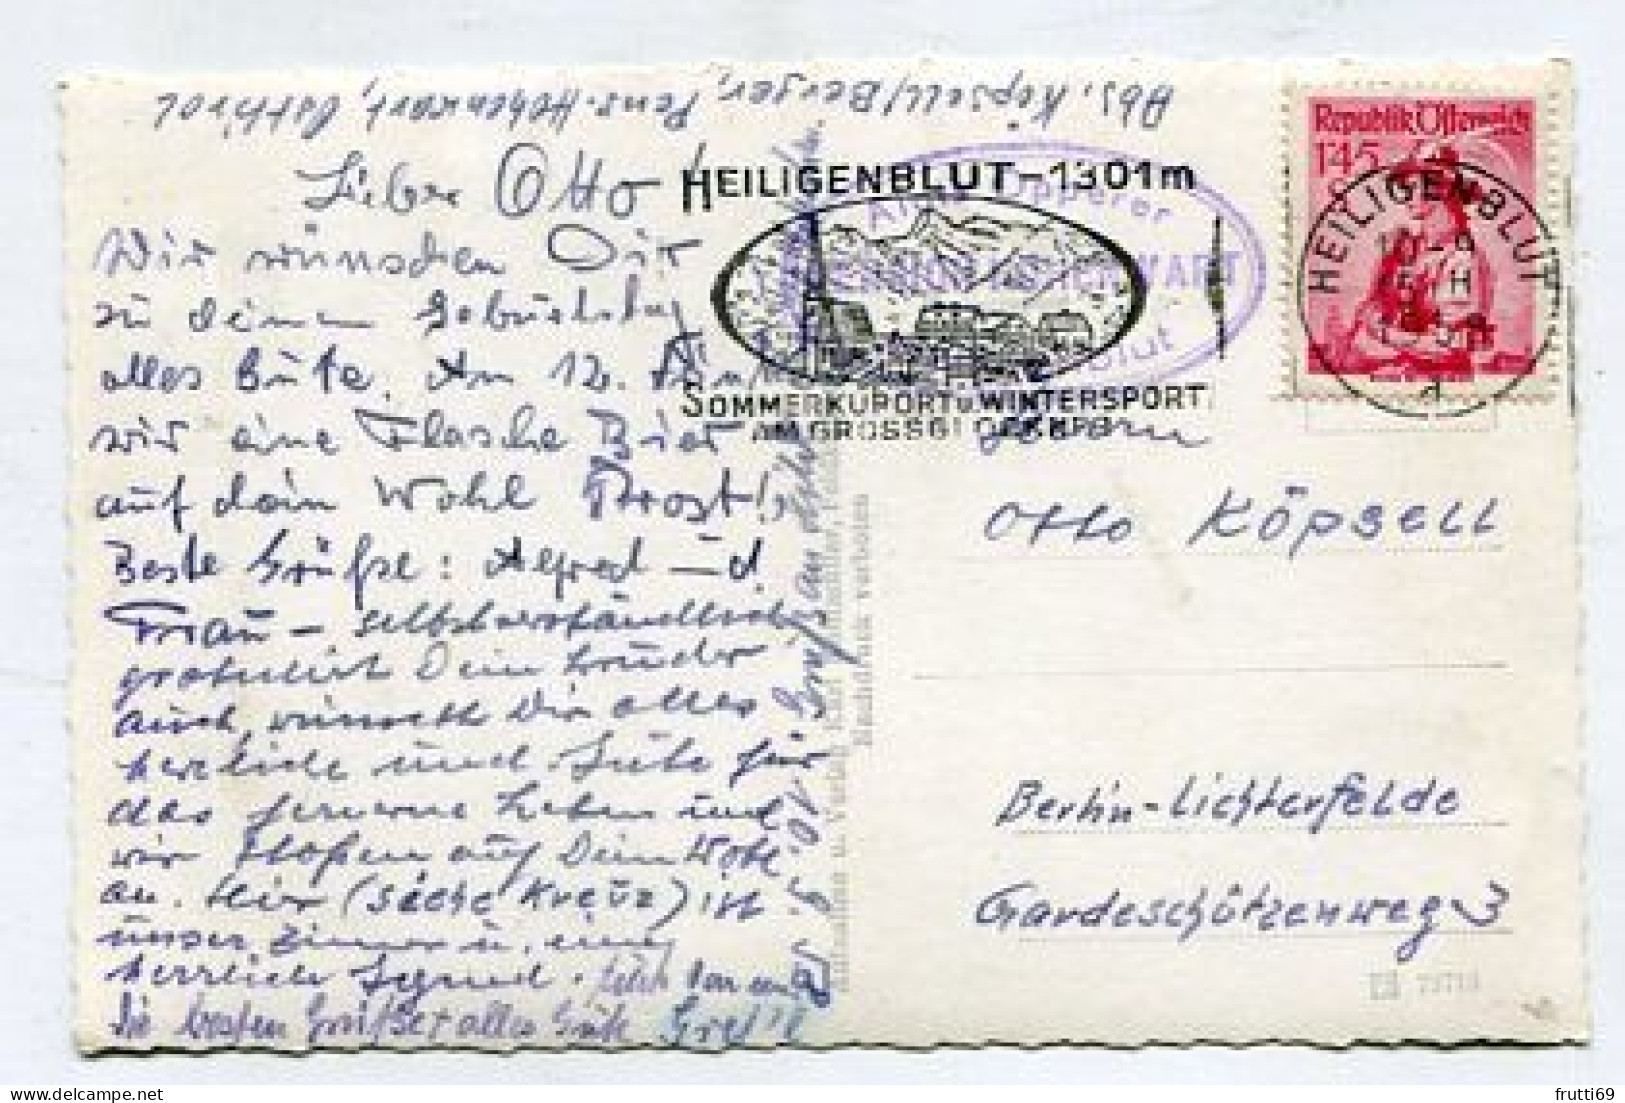 Abs. Köpsell/Berger, Pens. Hohenwart, Osttirol
Lieber Otto!
Wir wünschen Dir
zu deinem Geburtstag
alles Gute. Am 12.
wir eine Flasche Bier
auf dein Wohl Prost!
Beste Grüße: Alfred und
Frau – selbstverständlich
gratuliert Dein Bruder
auch, wünscht Dir alles
herzliche und Gute für
das fernere Leben und
wir stoßen auf Dein Wohl
an. Hier (siehe Kreuz) ist
unser Zimmer u. eine
herrliche Gegend.
Die besten Grüße + alles Gute Gretel
HEILIGENBLUT – 1301m
SOMMERKURORT u. WINTERSPORT
AM GROSSGLOCKNER
PENSION HOHENWART
Republik Österreich
1'45
S
HEILIGENBLUT
10-9
d
Herrn
Otto Köpsell
Berlin-Lichterfelde
Gardeschützenweg 3
Nachdruck verboten
frutti69